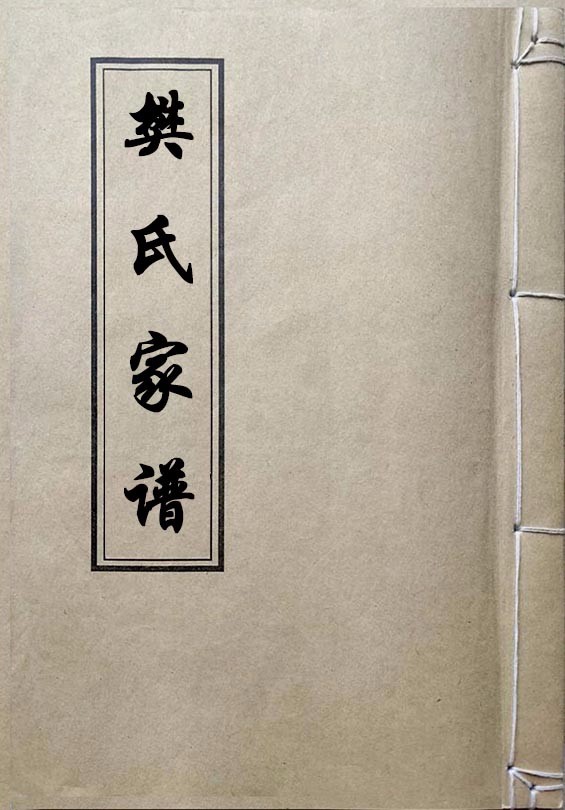 樊氏家谱